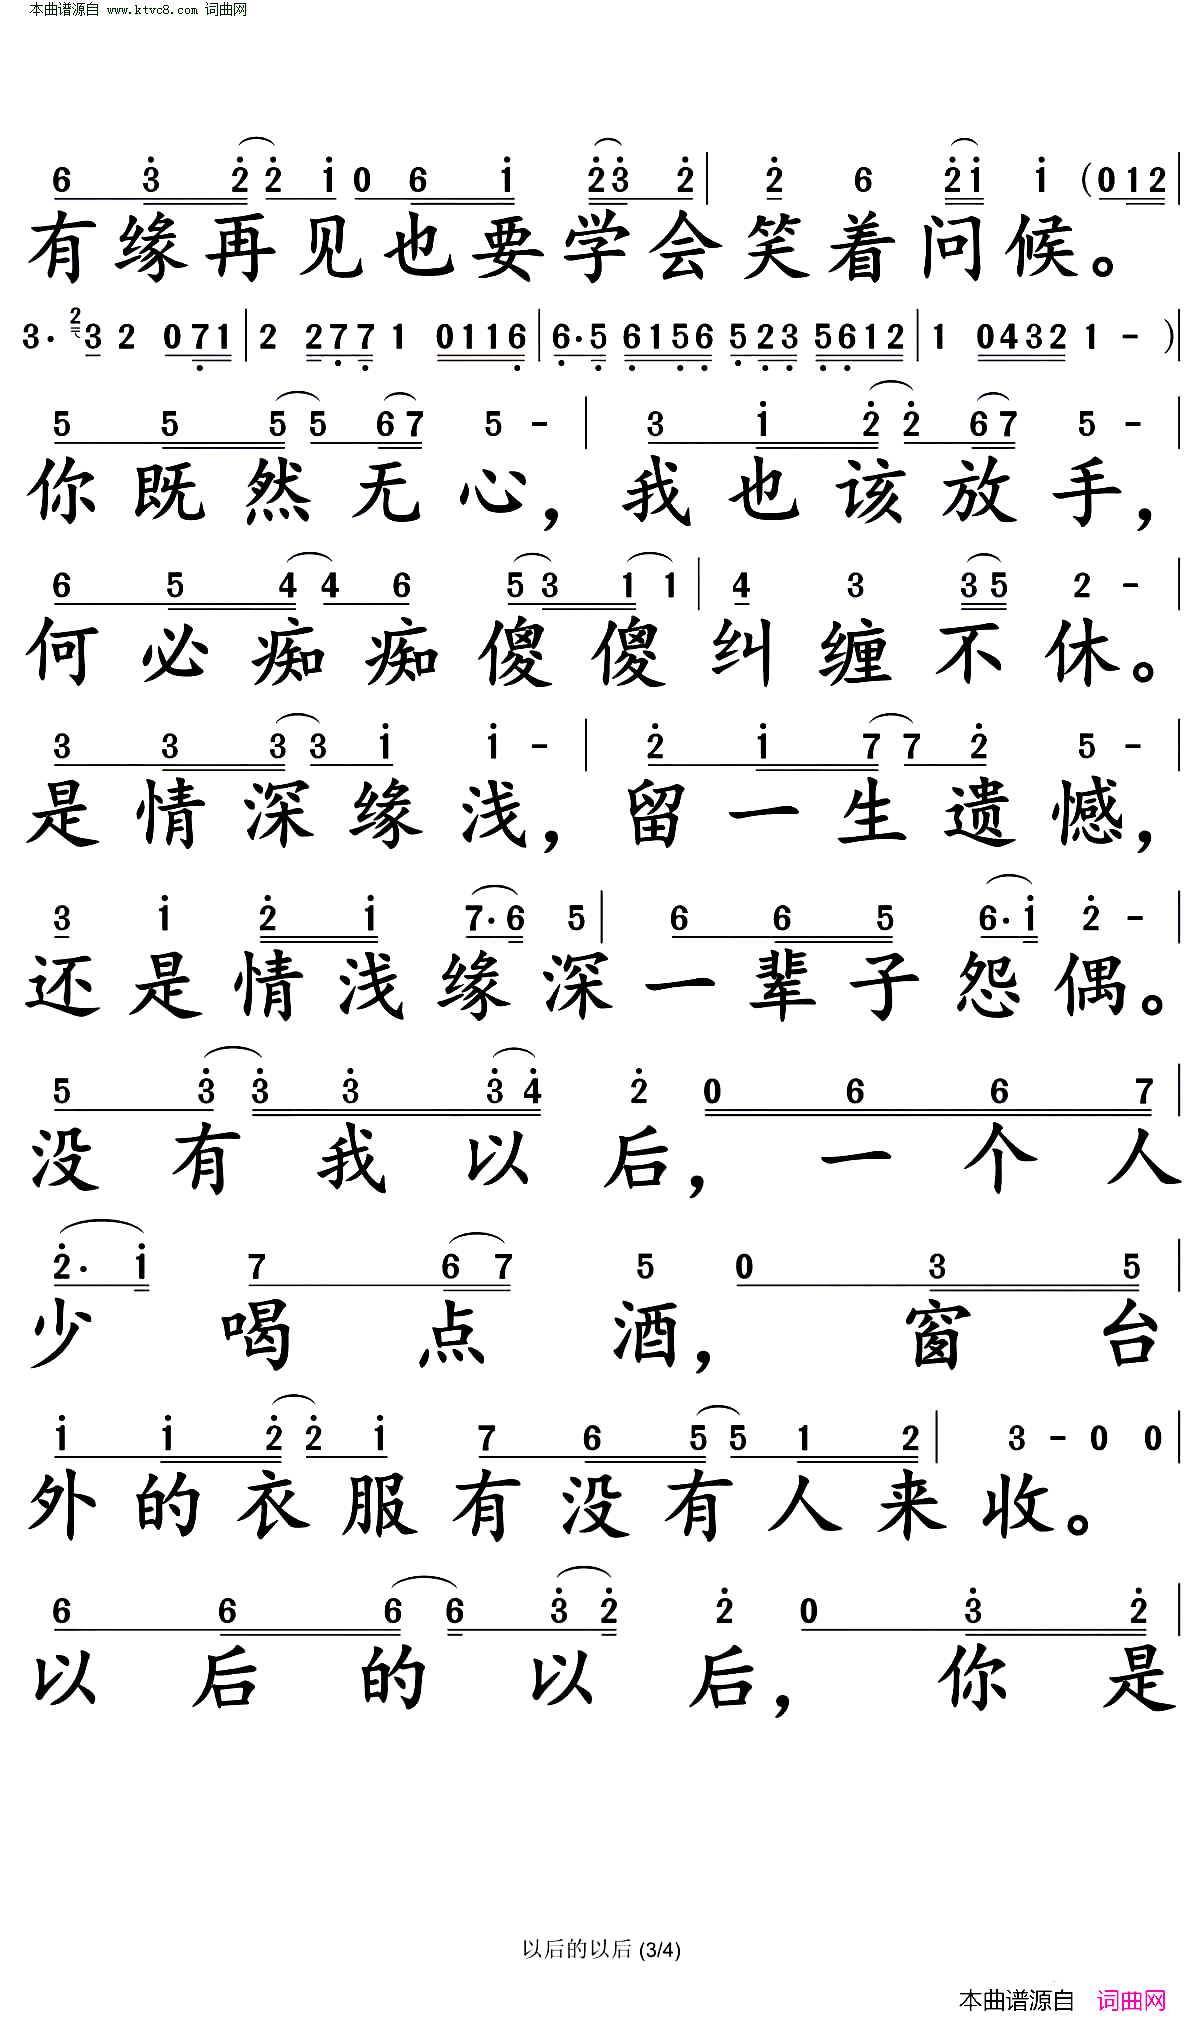 本曲谱源自 www.ktvc8.com 词曲网
6 3 2 2 1 0 6 1 2 3 2 | 2 6 2 1 1 (0 1 2 |
有缘再见也要学会笑着问候。
3· 2 3 2 0 7 1 | 2 2 7 7 1 0 1 1 6 | 6·5 6 1 5 6 5 2 3 5 6 1 2 | 1 0 4 3 2 1 - ) |
5 5 5 5 6 7 5 - | 3 1 2 2 6 7 5 - |
你既然无心，我也该放手，
6 5 4 4 6 5 3 1 1 | 4 3 3 5 2 - |
何必痴痴傻傻纠缠不休。
3 3 3 3 1 1 - | 2 1 7 7 2 5 - |
是情深缘浅，留一生遗憾，
3 1 2 1 7·6 5 | 6 6 5 6·1 2 - |
还是情浅缘深一辈子怨偶。
5 3 3 3 3 4 2 0 6 6 7 |
没有我以后，一个人
2·1 7 6 7 5 0 3 5 |
少喝点酒，窗台
1 1 2 2 1 7 6 5 5 1 2 | 3 - 0 0 |
外的衣服有没有人来收。
6 6 6 6 3 2 2 0 3 2 |
以后的以后，你是
以后的以后 (3/4)
本曲谱源自 词曲网